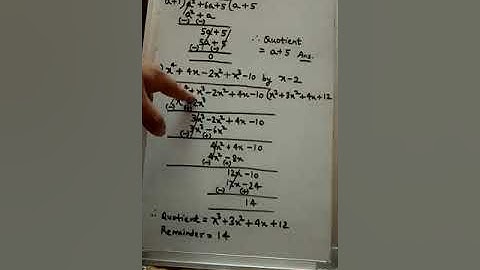 a+1) a² + 6a+5 (a+5
a² + a
(-) (-)
5a + 5
5a + 5
(-) (-)
0
∴ Quotient
= a+5 Ans.
x⁴ + 4x - 2x² + x³ - 10 by x-2
x³ - 2x² + 4x - 10 (x³ + 3x² + 4x + 12
(-)
3x³ - 2x² + 4x - 10
3x³ - 6x²
(-) (+)
4x² + 4x - 10
4x² - 8x
(-) (+)
12x - 10
12x - 24
(-) (+)
14
∴ Quotient = x³ + 3x² + 4x + 12
Remainder = 14